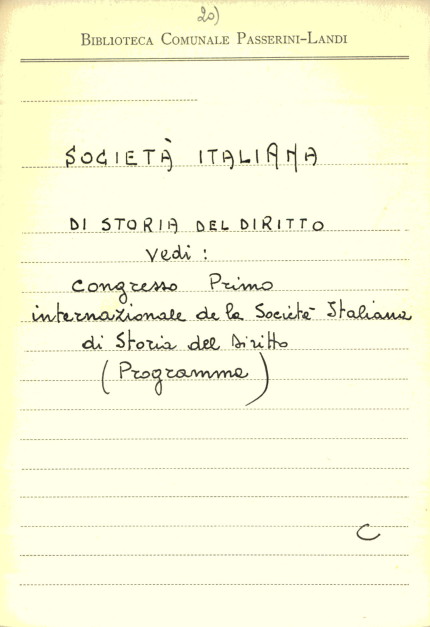 20)
BIBLIOTECA COMUNALE PASSERINI-LANDI
SOCIETÀ ITALIANA
DI STORIA DEL DIRITTO
Vedi :
Congresso Primo
internazionale de la Società Italiana
di Storia del Diritto
(Programma)
C